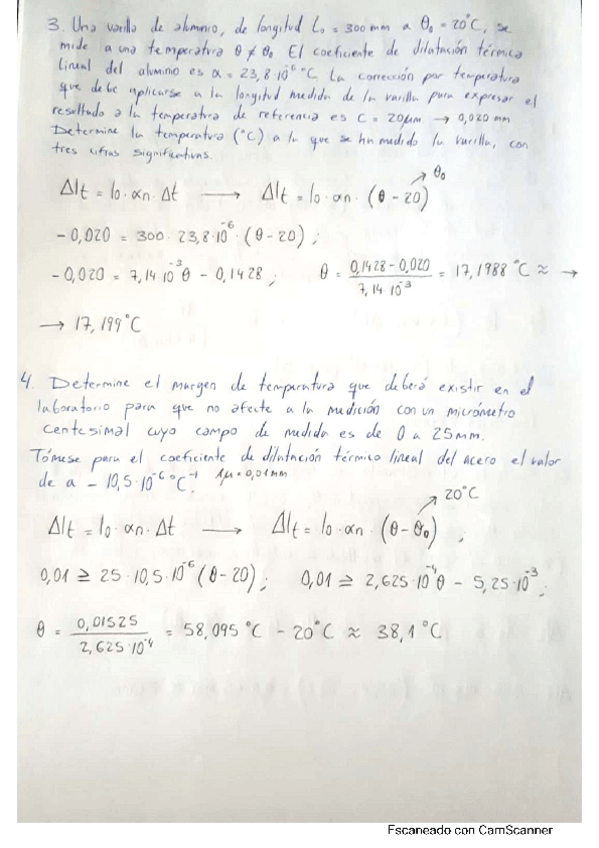 3. Una varilla de aluminio, de longitud L₀ = 300 mm a θ₀ = 20°C, se
mide a una temperatura θ ≠ θ₀ El coeficiente de dilatación térmica
lineal del aluminio es α = 23,8·10⁻⁶ °C. La corrección por temperatura
que debe aplicarse a la longitud medida de la varilla para expresar el
resultado a la temperatura de referencia es C = 20μm → 0,020 mm
Determine la temperatura (°C) a la que se ha medido la varilla, con
tres cifras significativas.
θ₀
Δlt = lo · αn · Δt → Δlt = lo · αn · (θ - 20)
-0,020 = 300 · 23,8·10⁻⁶ · (θ - 20) ;
-0,020 = 7,14·10⁻³ θ - 0,1428 ; θ = (0,1428 - 0,020) / (7,14·10⁻³) = 17,1988 °C ≈ →
→ 17,199°C
4. Determine el margen de temperatura que deberá existir en el
laboratorio para que no afecte a la medición con un micrómetro
centesimal cuyo campo de medida es de 0 a 25mm.
Tómese para el coeficiente de dilatación térmico lineal del acero el valor
de a - 10,5·10⁻⁶ °C⁻¹ 1μ = 0,01 mm
20°C
Δlt = lo · αn · Δt → Δlt = lo · αn · (θ - θ₀) ;
0,01 ≥ 25 · 10,5·10⁻⁶ (θ - 20) ; 0,01 ≥ 2,625·10⁻⁴ θ - 5,25·10⁻³ ;
θ = 0,01525 / (2,625·10⁻⁴) = 58,095 °C - 20°C ≈ 38,1 °C.
Escaneado con CamScanner